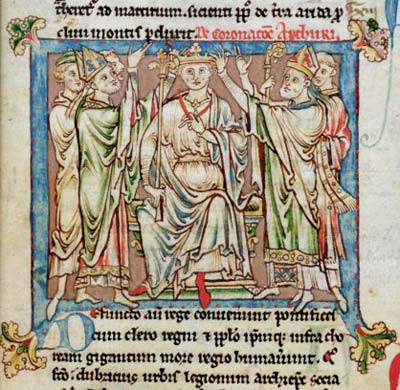 theret' ad martirium. sicienti pp̄o de tra arida p
cliui montis pduxit. De coronacōe Arthuri.
Defuncto aū rege conueniunt pontifices
cum clero regni et pp̄lo ipm̄q; infra cho
ream gigantum more regio humauunt.
fcō: dubricius urbis legionum archiepc socia